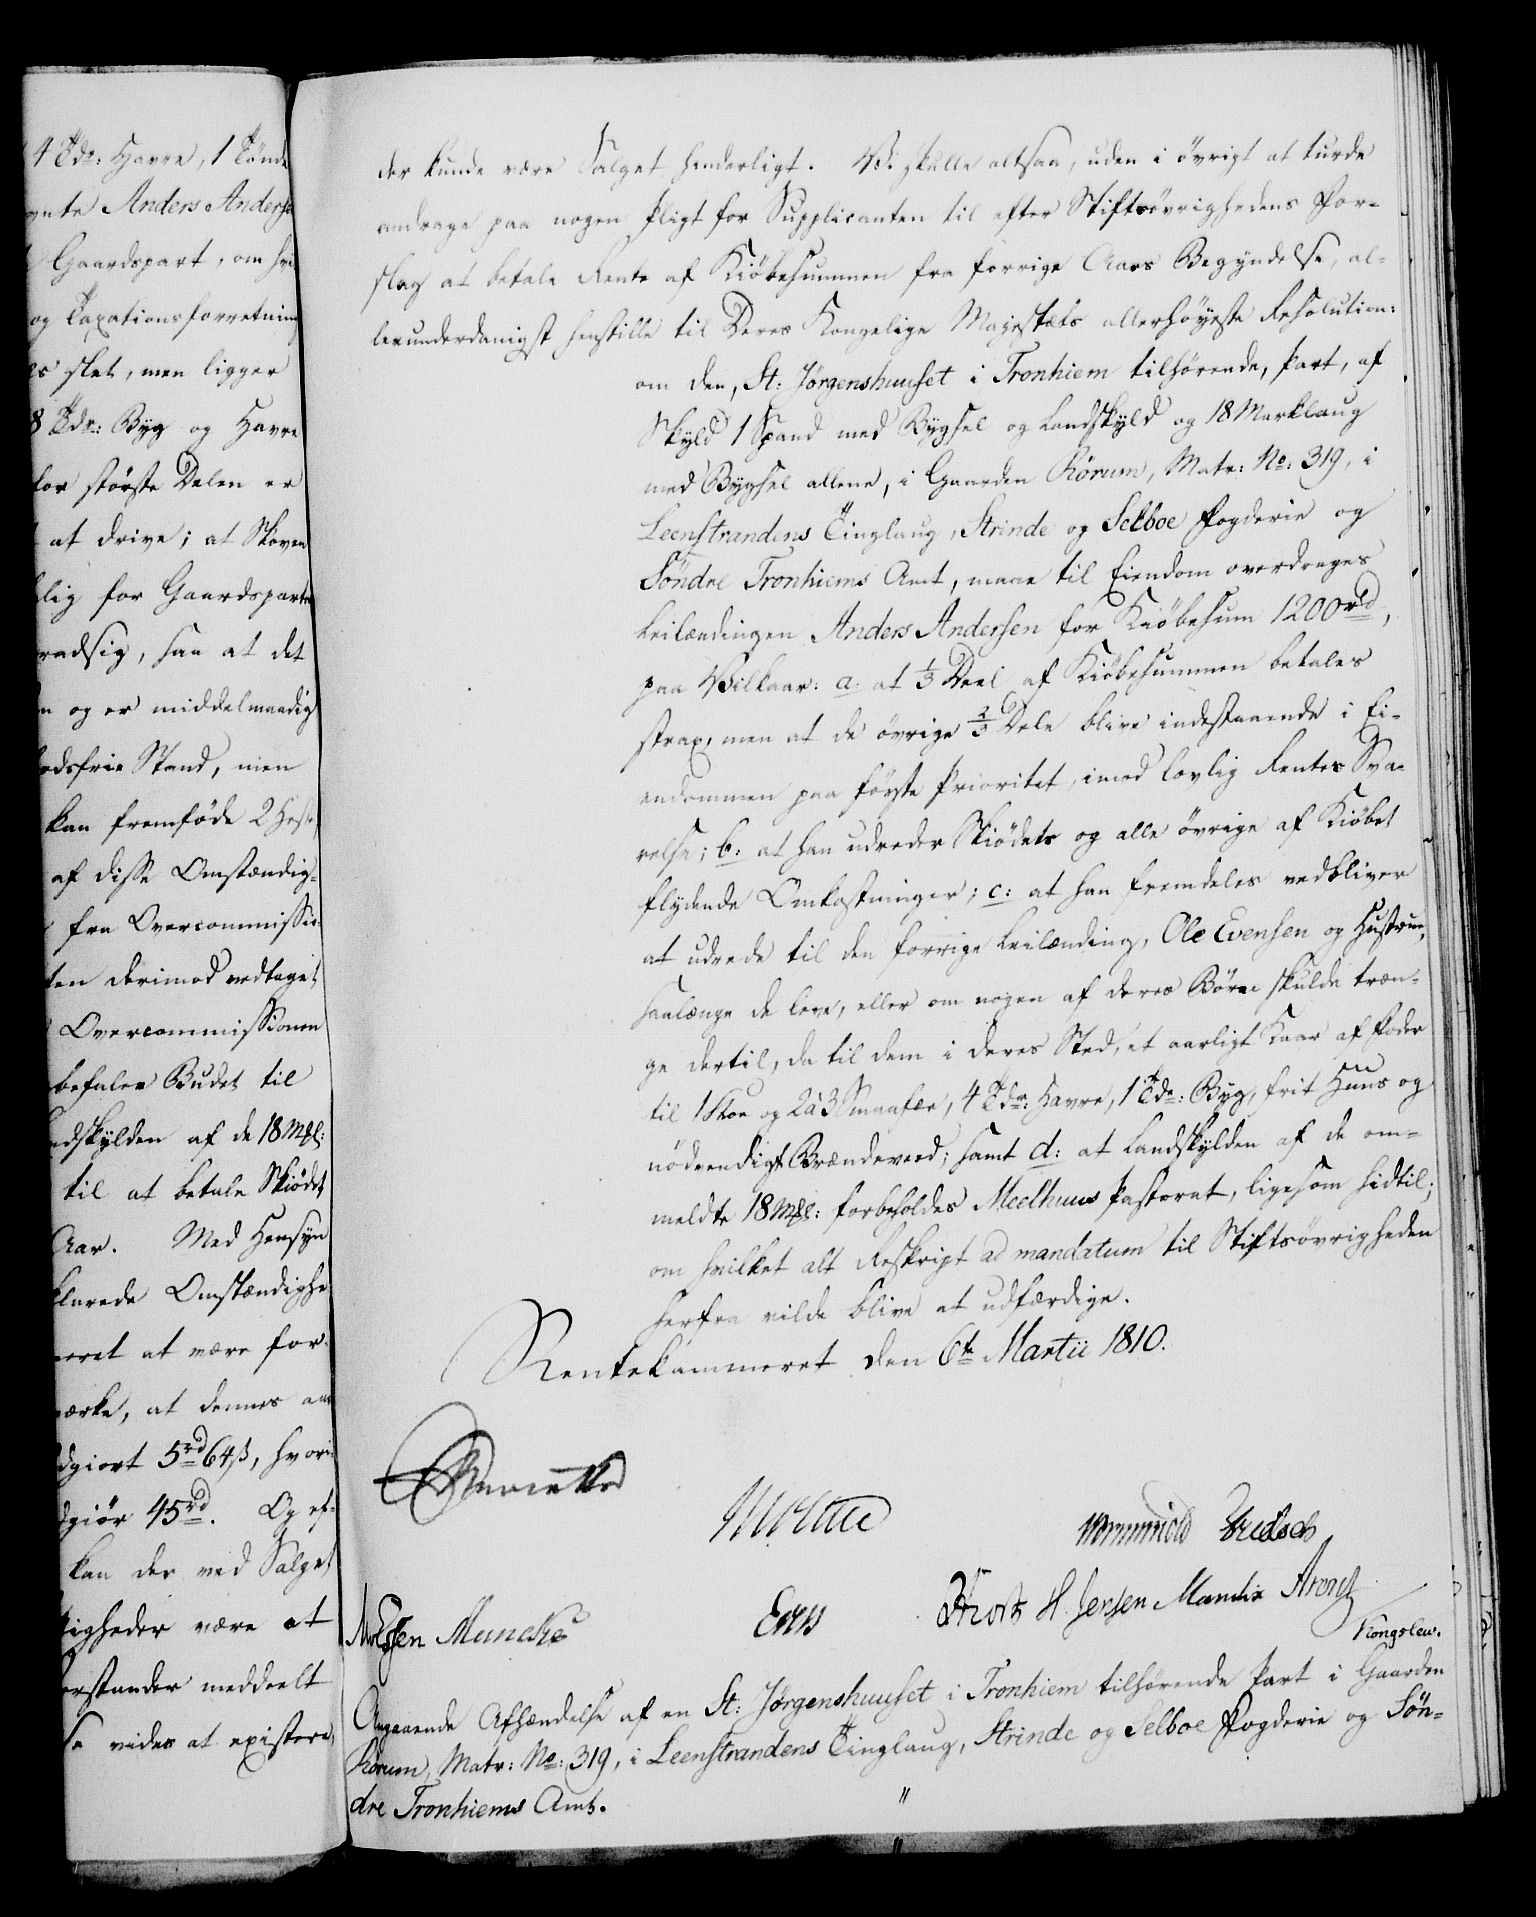 4 Tdr: Havre, 1 Tønde
Anders Anders
Gaardspart, om
og Taxationsforretning
slet, men ligger
8 Tdr: Byg og Havre
for største Delen er
at drive; at Skoven
lig for Gaardsparten
saa at det
og er middelmaadig
Stand, men
kan fremføde 2 Heste
af disse Omstændig-
fra Overcommissio
derimod vedtaget
Overcommissionen
befalen Budet til
dskylden af de 18 Mkl:
til at betale Skiødet
Aar. Med Hensyn
klarede Omstændighe
at være for-
mærke, at dennes
dgiort 5rd 64 s, hvori-
dgiør 45rd. Og ef-
kan der ved Salget
tigheder være at
orstander meddeelt
vides at existere,
der kunde være Salget hinderligt. Vi skulle altsaa, uden i øvrigt at turde
andrage paa nogen Pligt for Supplicanten til efter Stiftsøvrighedens For-
slag at betale Rente af Kiøbesummen fra forrige Aars Begyndelse, al-
lerunderdanigst henstille til Deres Kongelige Majestæts allerhøyeste Resolution:
om den, St: Jørgenshuuset i Tronhiem tilhørende, Part, af
Skyld 1 Spand med Bygsel og Landskyld og 18 Marklaug
med Bygsel allene, i Gaarden Rørum, Matr: No: 319, i
Leenstrandens Tinglaug, Strinde og Selboe Fogderie og
Søndre Tronhiems Amt, maae til Eiendom overdrages
Leilændingen Anders Andersen for Kiøbesum 1200rd,
paa Vilkaar: a: at 1/3 Deel af Kiøbesummen betales
strax, men at de øvrige 2/3 Dele blive indestaaende i Ei-
endommen paa første Prioritet, imod lovlig Rentes Sva-
relse; b: at han udreder Skiødets og alle øvrige af Kiøbet
flydende Omkostninger; c: at han fremdeles vedbliver
at udrede til den forrige Leilænding, Ole Evensen og Hustrue,
saalænge de leve, eller om nogen af deres Børn skulde træn-
ge dertil, da til dem i deres Sted, et aarligt Kaar af Foder
til 1 Koe og 2 à 3 Smaafæe, 4 Tdr: Havre, 1 Tde: Byg, frit Huus og
nødvendigt Brændeveed; samt d: at Landskylden af de om-
meldte 18 Mkl: forbeholdes Meelhuus Pastorat, ligesom hidtil;
om hvilket alt Reskript ad mandatum til Stiftsøvrigheden
herfra vilde blive at udfærdige.
Rentekammeret den 6te Martii 1810.
Moltke
Wormskiold
Essen Muncke
H. Jensen Mandix
Kongslew.
Angaaende Afhændelse af en St: Jørgenshuuset i Tronhiem tilhørende Part i Gaarden
Rørum, Matr: No: 319, i Leenstrandens Tinglaug, Strinde og Selboe Fogderie og Søn-
dre Tronhiems Amt.